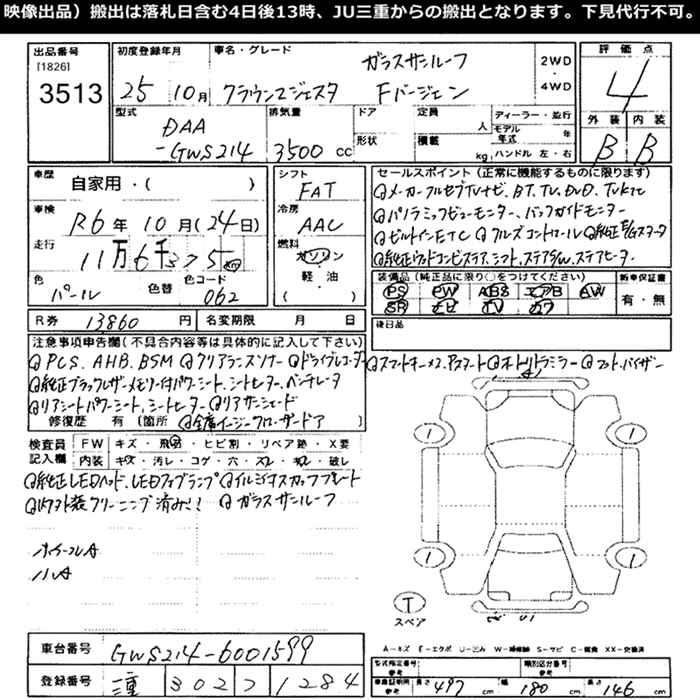 映像出品）搬出は落札日含む4日後13時、JU三重からの搬出となります。下見代行不可。
出品番号
[1826]
3513
初度登録年月
25 10月
車名・グレード
ガラスサンルーフ
クラウンマジェスタ Fバージョン
2WD
・
4WD
評価点
4
外装 内装
B B
型式
DAA
-GWS214
排気量
3500 cc
ドア
形状
定員 人
積載 kg
ディーラー・並行
モデル年式 年
ハンドル 左・右
車歴
自家用・( )
車検
R6年10月(24日)
走行
11万6千375
色
パール
色替
色コード
062
シフト
FAT
冷房
AAC
燃料
ガソリン
軽・油
( )
セールスポイント（正常に機能するものに限ります）
◎メーカーフルセグTVナビ、BT、TV、DVD、TVKIT
◎パノラミックビューモニター、バックガイドモニター
◎ビルトインETC ◎クルーズコントロール ◎純正E/Gスタータ
◎純正ウッドコンビステア、シフト、ステアS/W、ステアヒーター
装備品（純正品に限り○をつけてください）
PS PW ABS エアB AW
SR ナビ TV カワ
新車保証書
有・無
R券 13860 円
名変期限 月 日
後日品
注意事項申告欄(不具合内容等は具体的に記入して下さい)
◎PCS、AHB、BSM ◎クリアランスソナー ◎ドライブレコーダー ◎スマートキーメス、アスタート ◎オートリトラミラー ◎フット・バイザー
◎純正ブラックレザーメモリー付パワーシート、シートヒーター、ベンチレータ
◎リアシートパワーシート、シートヒーター ◎リアサンシェード
修復歴 有 (箇所 ◎全席イージークローザードア )
検査員記入欄
FW キズ・飛石・ヒビ割・リペア跡・X要
内装 キズ・汚レ・コゲ・穴・スレ・キレ・破レ
◎純正LEDヘッド、LEDフォグランプ ◎イルミナスカッフプレート
◎内外装クリーニング済み!! ◎ガラスサンルーフ
ホイールA
ハA
1
1
1
1
T
スペア
A－キズ E－エクボ U－凹み W－補修跡 S－サビ C－腐食 XX－交換済
車台番号
GWS214-6001599
登録番号
三重 302 フ 1284
型式指定番号
参考
類別区分番号
参考
車庫証明用
参考
長さ 497 cm
幅 180 cm
高さ 146 cm